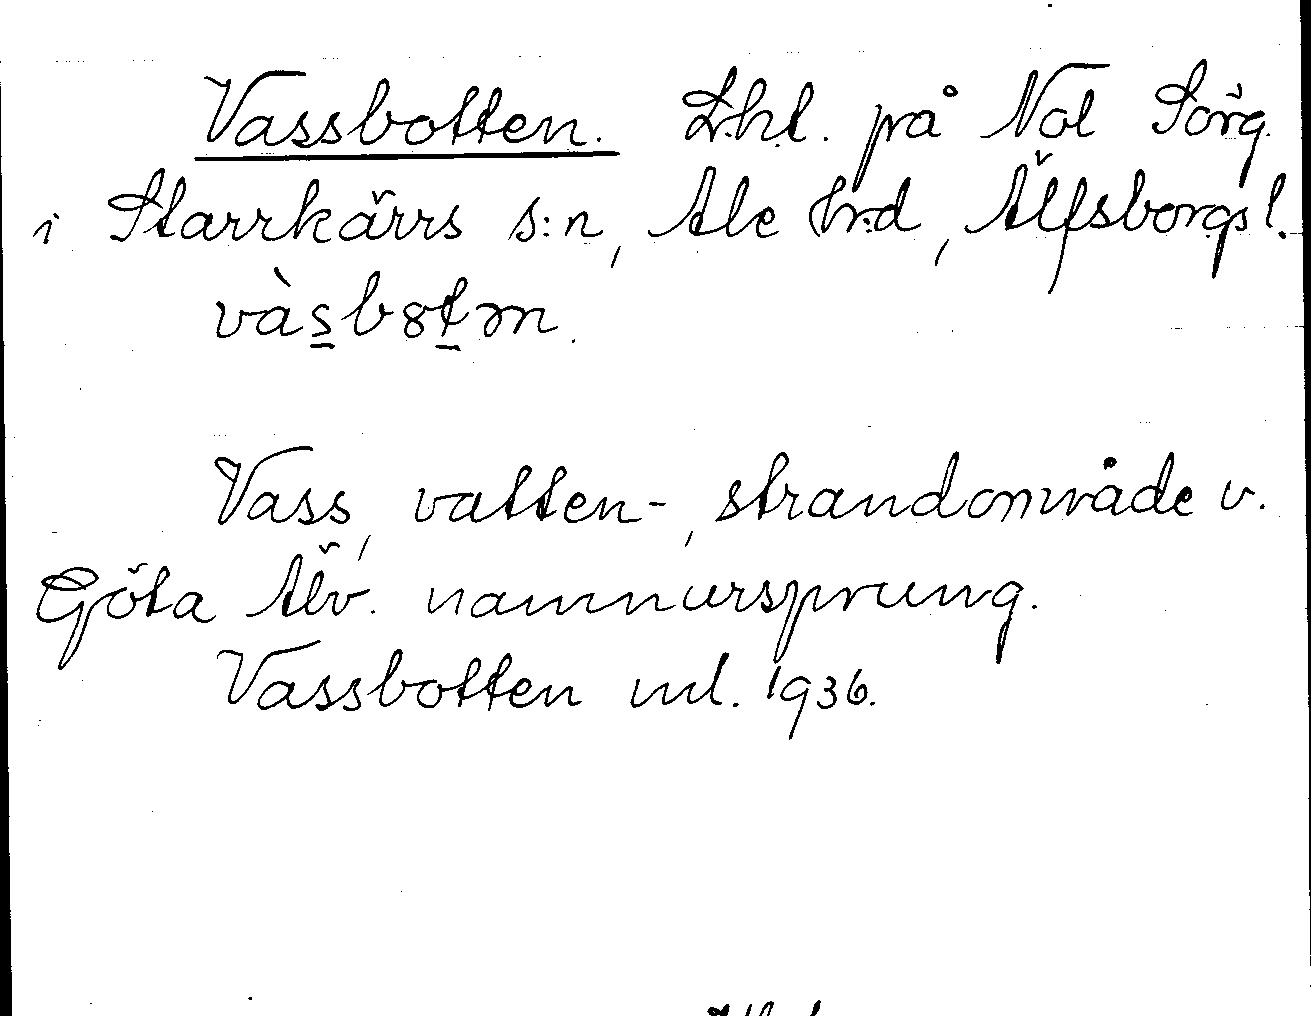 Vassbotten. Lhl. på Nol Sörg.
i Starrkärrs s:n, Ale hrd, Älfsborgs l.
vàsb8tm.
Vass, vatten-, strandområde v.
Göta Älv. namnursprung.
Vassbotten ml. 1936.